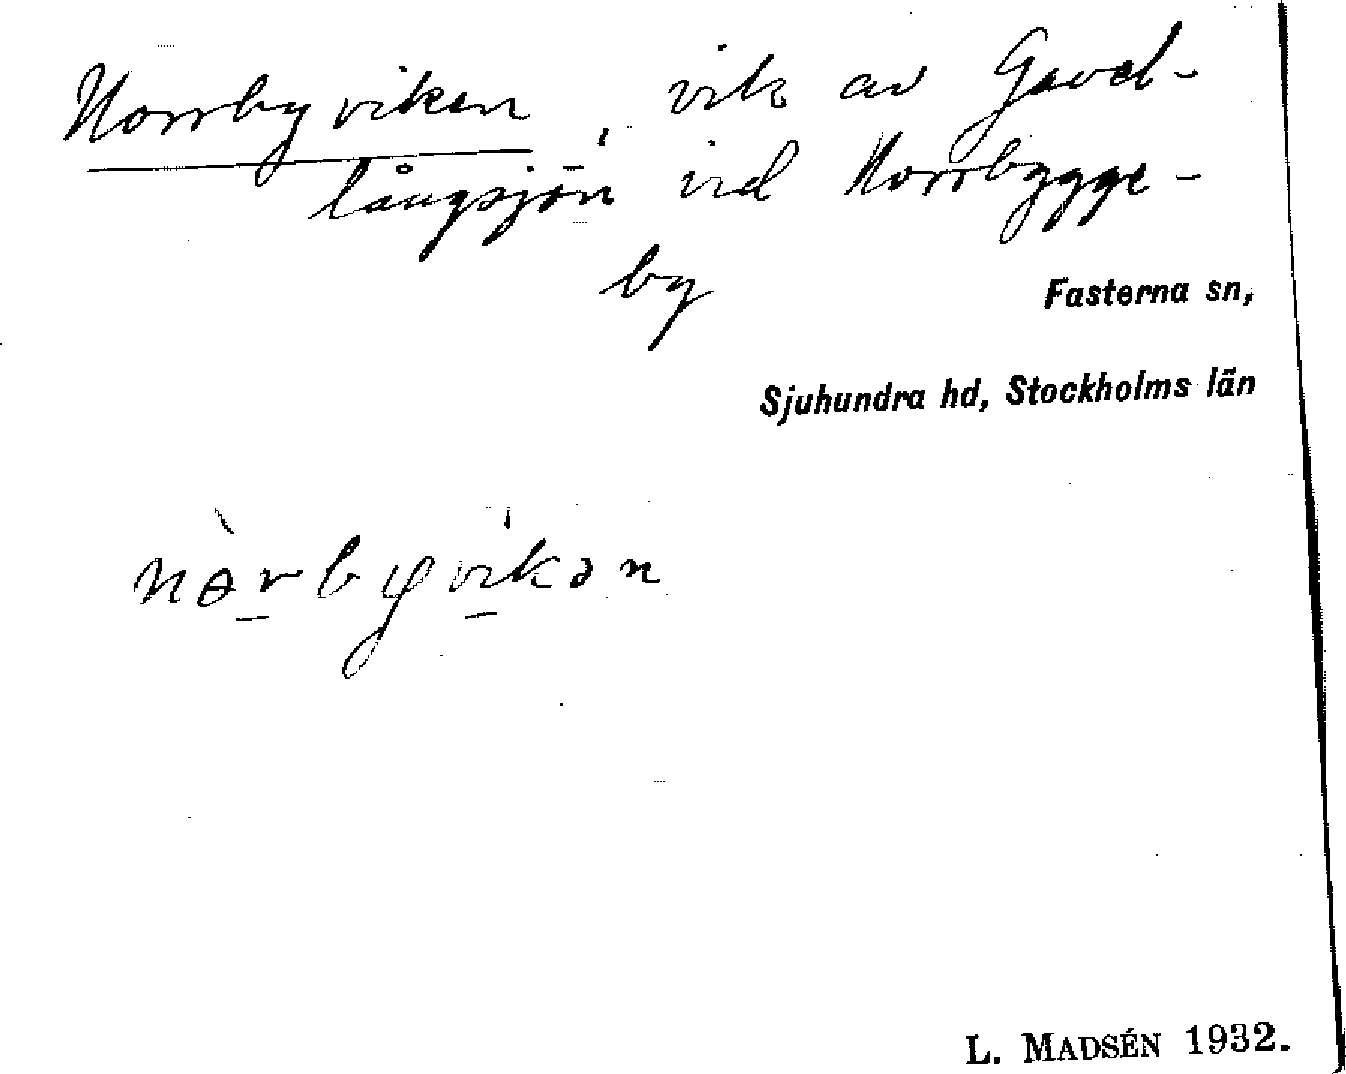 Norrbyviken, vik av Gavel-
långsjön vid Norrbygge-
by
Fasterna sn,
Sjuhundra hd, Stockholms län
nɵ̀rbyvikən
L. MADSÉN 1932.